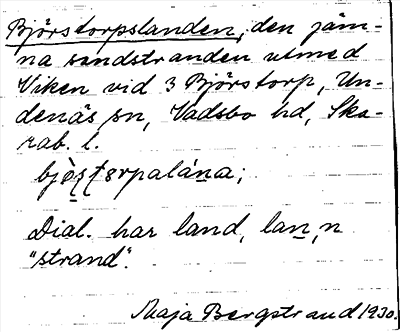 Björstorpslanden, den jäm-
na sandstranden utmed
Viken vid 3 Björstorp, Un-
denäs sn, Vadsbo hd, Ska-
rab. l.
Dial. har land, lan,n
"strand".
Maja Bergstrand 1930.